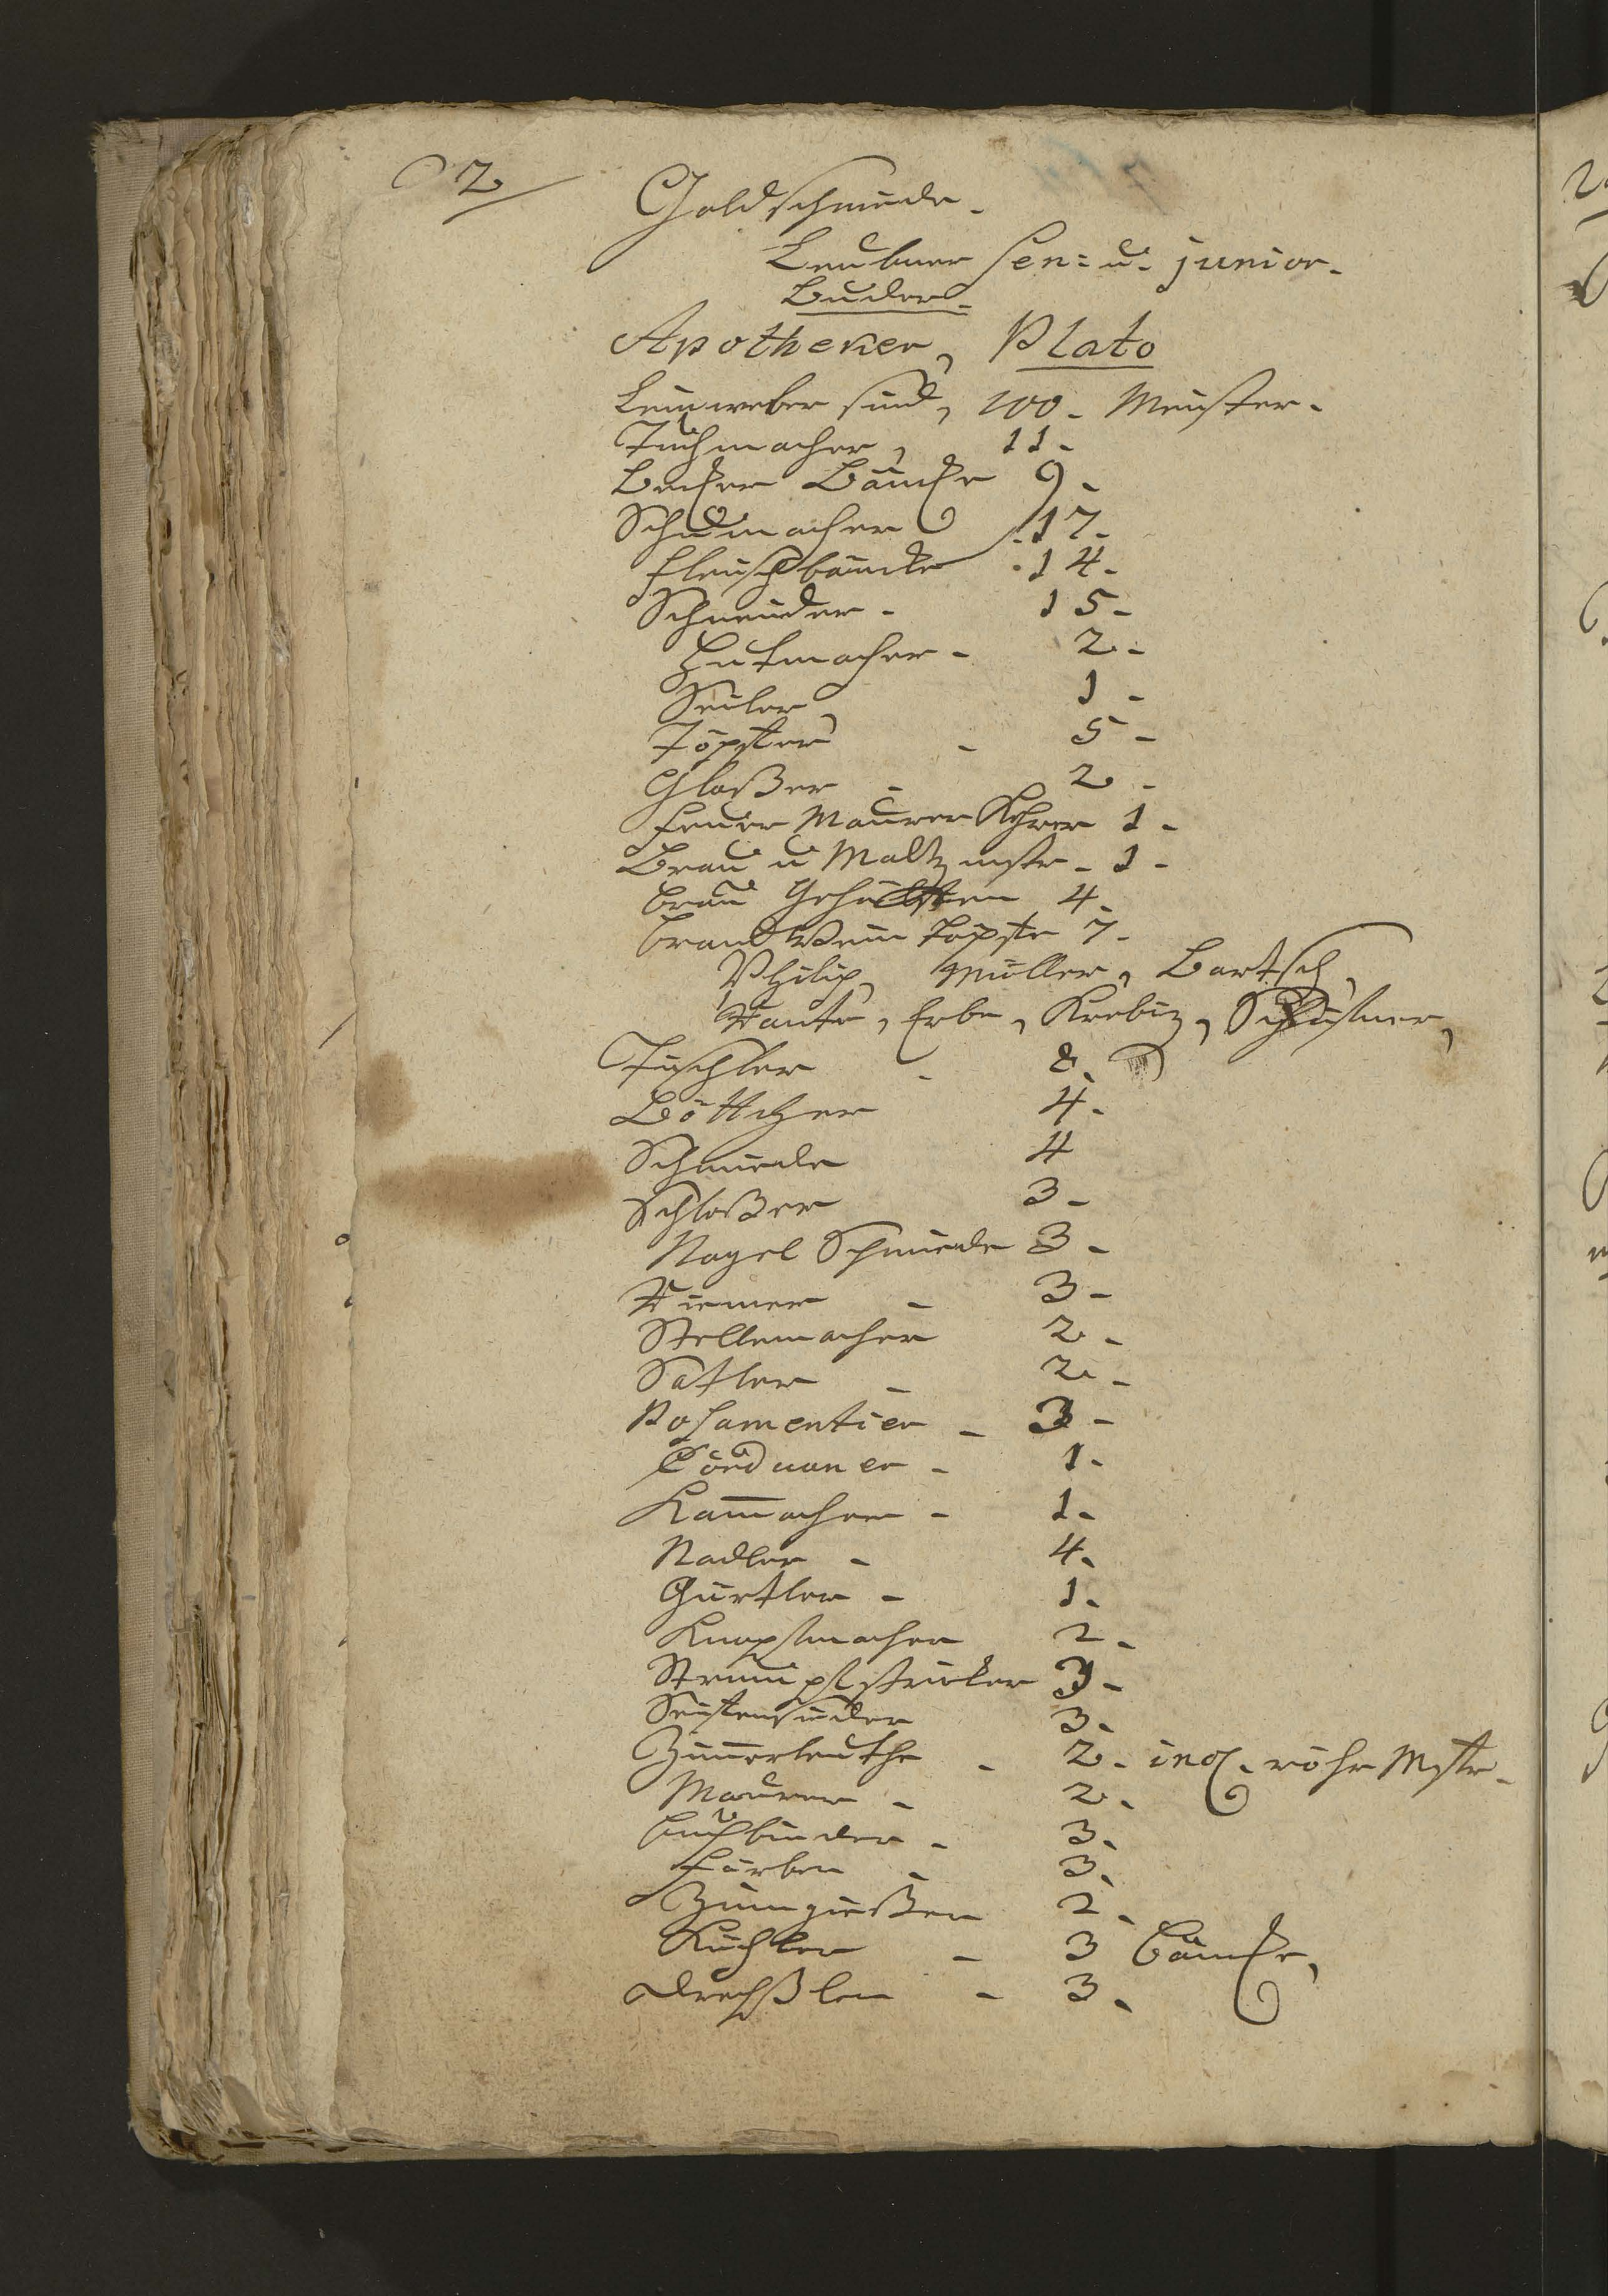 2
Goldschmiede.
Leubner Sen: u. junior.
Buder.
Apotheker, Plato
Leinweber sind, 100. Meister.
Tuchmacher, 11.
Becker Bäncke 9.
Schumacher 17.
Fleischbäncke 14.
Schneider. 15.
Hutmacher. 2.
Seiler 1.
Töpffer 5.
Glaßer 2.
Feuer Mauren Kehrer 1.
Brau u Maltz mstr. 1.
Brau Gehülffen 4.
Brandtwein Töpffe 7.
Philip, Müller, Bartsch,
Erbe, Krebiz,
Tischler 8.
Böttcher 4.
Schmiede 4
Schloßer 3.
Nagel Schmiede 3.
Riemer 3.
Stellemacher 2.
Satler 2.
Posamentier 3.
Corduaner 1.
Kam̄acher 1.
Nadler 4.
Gürtler 1.
Knopfmacher 2.
Strumpfstricker 3.
Seiffensieder 3.
Zim̄erleuthe 2. incl. röhr Mstr.
Maurer 2.
Buchbinder 3.
Färber 3.
Zinngießer 2.
Küchler 3 Bäncke,
Drechßler 3.